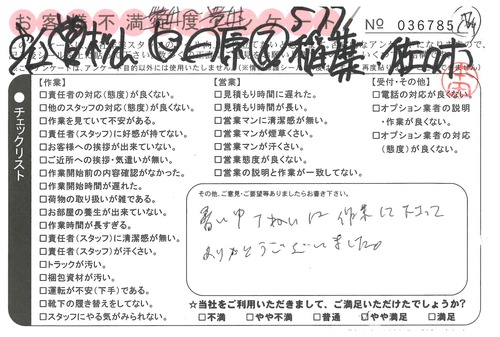 お客様不満足度アンケート
5/17
№ 036785
稲葉
●チェックリスト
【作業】
□責任者の対応(態度)が良くない。
□他のスタッフの対応(態度)が良くない。
□作業を見ていて不安がある。
□責任者(スタッフ)に好感が持てない。
□お客様への挨拶が出来ていない。
□ご近所への挨拶・気遣いが無い。
□作業開始前の内容確認がなかった。
□作業開始時間が遅れた。
□荷物の取り扱いが雑である。
□お部屋の養生が出来ていない。
□作業時間が長すぎる。
□責任者(スタッフ)に清潔感が無い。
□責任者(スタッフ)が汗くさい。
□トラックが汚い。
□梱包資材が汚い。
□運転が不安(下手)である。
□靴下の履き替えをしてない。
□スタッフにやる気がみられない。
【営業】
□見積もり時間に遅れた。
□見積もり時間が長い。
□営業マンに清潔感が無い。
□営業マンが煙草くさい。
□営業マンが汗くさい。
□営業態度が良くない。
□営業の説明と作業が一致してない。
【受付・その他】
□電話の対応が良くない。
□オプション業者の説明
・作業が良くない。
□オプション業者の対応
(態度)が良くない。
その他、ご意見・ご要望等ありましたらお書き下さい。
暑い中ていねいに作業して下さって
ありがとうございました。
☆当社をご利用いただきまして、ご満足いただけたでしょうか?
□不満 □やや不満 □普通 □やや満足 □満足